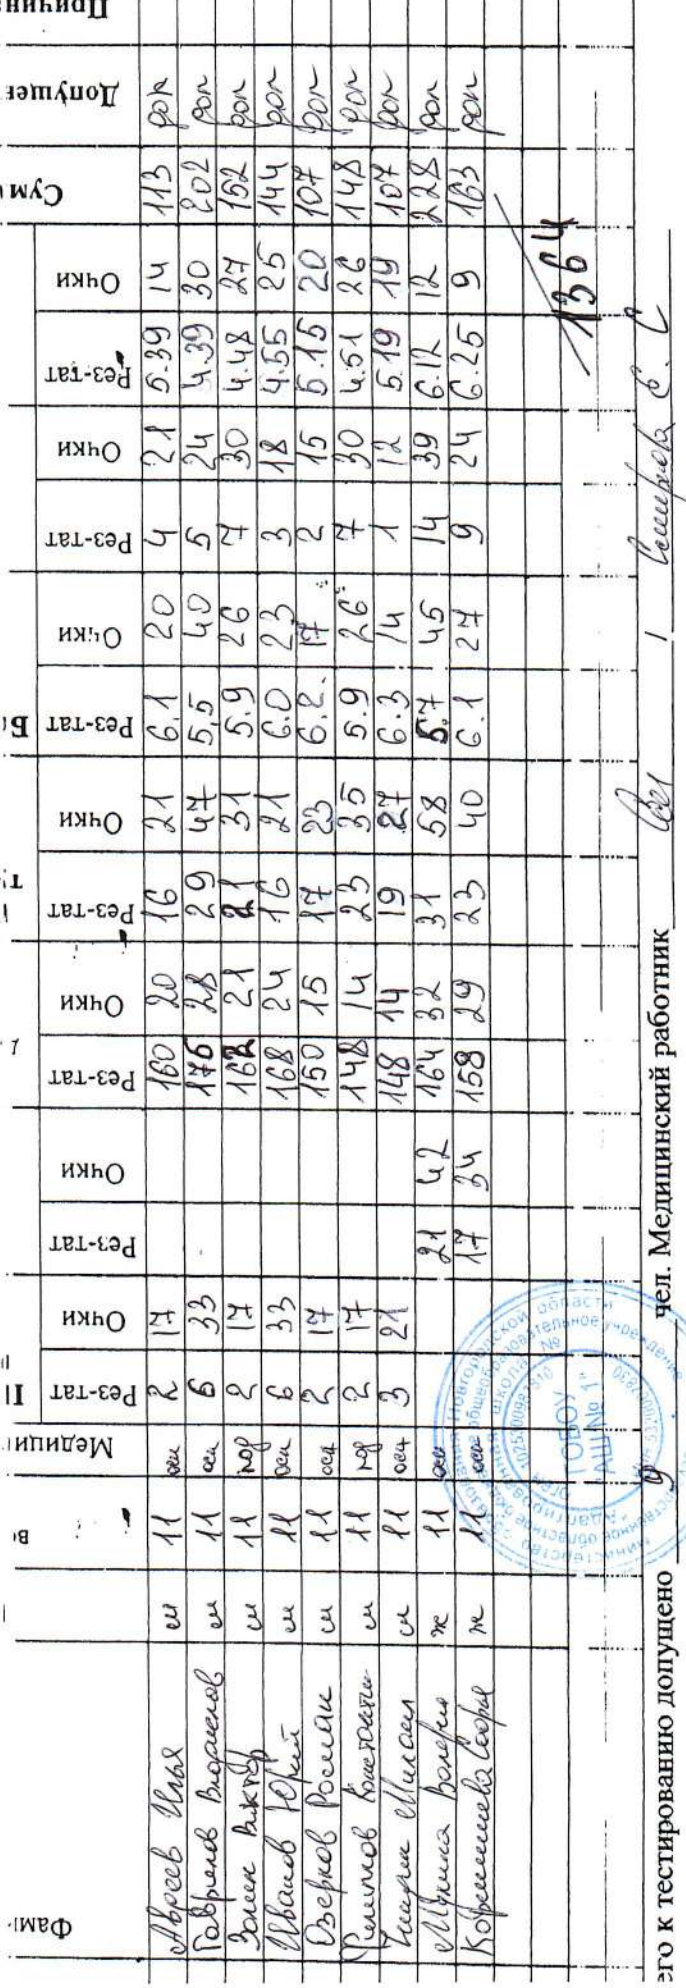 Фами Во Медици Рез-тат Очки Рез-тат Очки Рез-тат Очки Рез-тат Очки Рез-тат Очки Рез-тат Очки Рез-тат Очки Сум Допущен Причина
Авреев Илья м 11 осн 2 17 160 20 16 21 6.1 20 4 21 5.39 14 113 доп
Гаврилов м 11 осн 6 33 176 28 29 47 5.5 40 5 24 4.39 30 202 доп
Виктор м 11 под 2 17 162 21 21 31 5.9 26 7 30 4.48 27 152 доп
Иванов Юрий м 11 осн 6 33 168 24 16 21 6.0 23 3 18 4.55 25 144 доп
Озерков Роман м 11 осн 2 17 150 15 17 23 6.2. 17 2 15 5.15 20 107 доп
м 11 под 2 17 148 14 23 35 5.9 26 7 30 4.51 26 148 доп
м 11 осн 3 21 148 14 19 27 6.3 14 1 12 5.19 19 107 доп
Валерия ж 11 осн 21 42 164 32 31 58 5.7 45 14 39 6.12 12 228 доп
ж 11 осн 17 34 158 29 23 40 6.1 27 9 24 6.25 9 163 доп
1364
его к тестированию допущено 9 чел. Медицинский работник / Смирнова С. С
ГОБОУ
"АШ № 1"